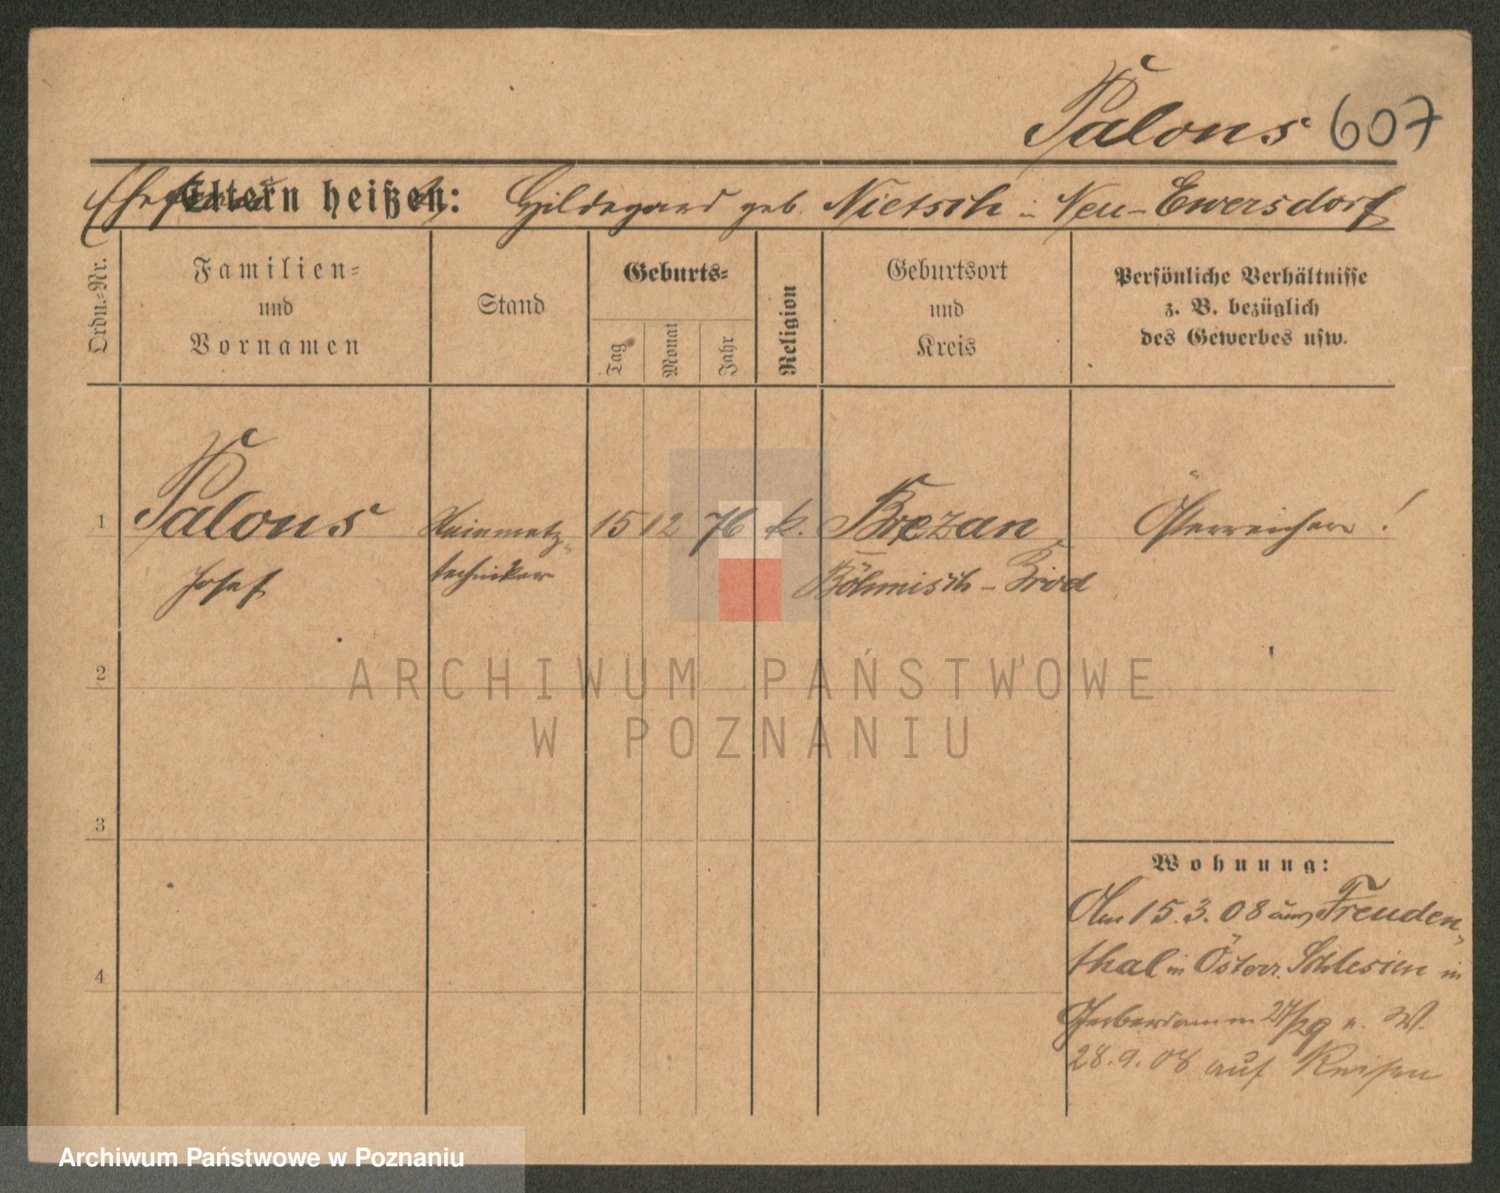 Palons 607
Eltern heißen: Hildegard geb. Nietsch in Neu-Ewersdorf
Ordn.-Nr.
Familien-
und
Vornamen
Stand
Geburts-
Tag
Monat
Jahr
Religion
Geburtsort
und
Kreis
Persönliche Verhältnisse
z. B. bezüglich
des Gewerbes usw.
1 Palons Steinmetz- 15 12 76 k. Brezan Österreicher!
Josef techniker Böhmisch-Brod
2
3
4
Wohnung:
Am 15.3.08 aus Freuden-
thal in Österr. Schlesien in
Gerberdamm 27/29 n. W.
28.9.08 auf Reisen
ARCHIWUM PAŃSTWOWE
W POZNANIU
Archiwum Państwowe w Poznaniu